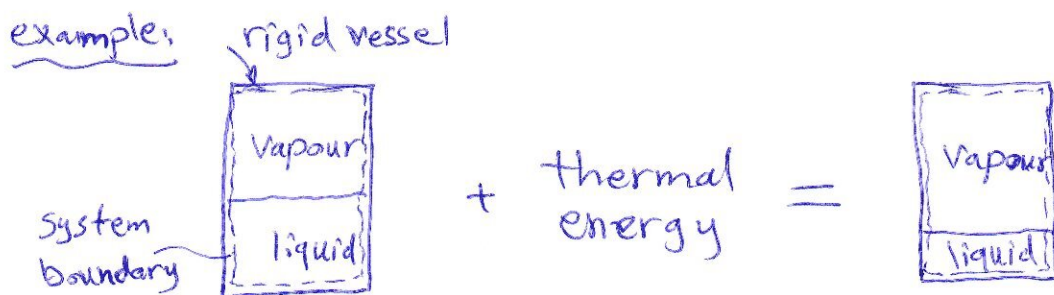 example:
rigid vessel
vapour
liquid
system
boundary
+
thermal
energy
=
vapour
liquid